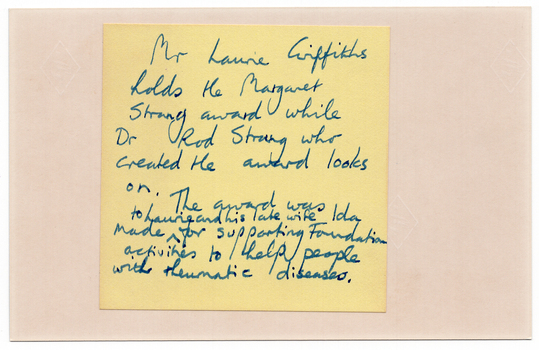 Mr Laurie Griffiths
holds the Margaret
Strang award while
Dr Rod Strang who
created the award looks
on. The award was
to Laurie and his late wife Ida
made ^ for supporting Foundation
activities to help people
with rheumatic diseases.